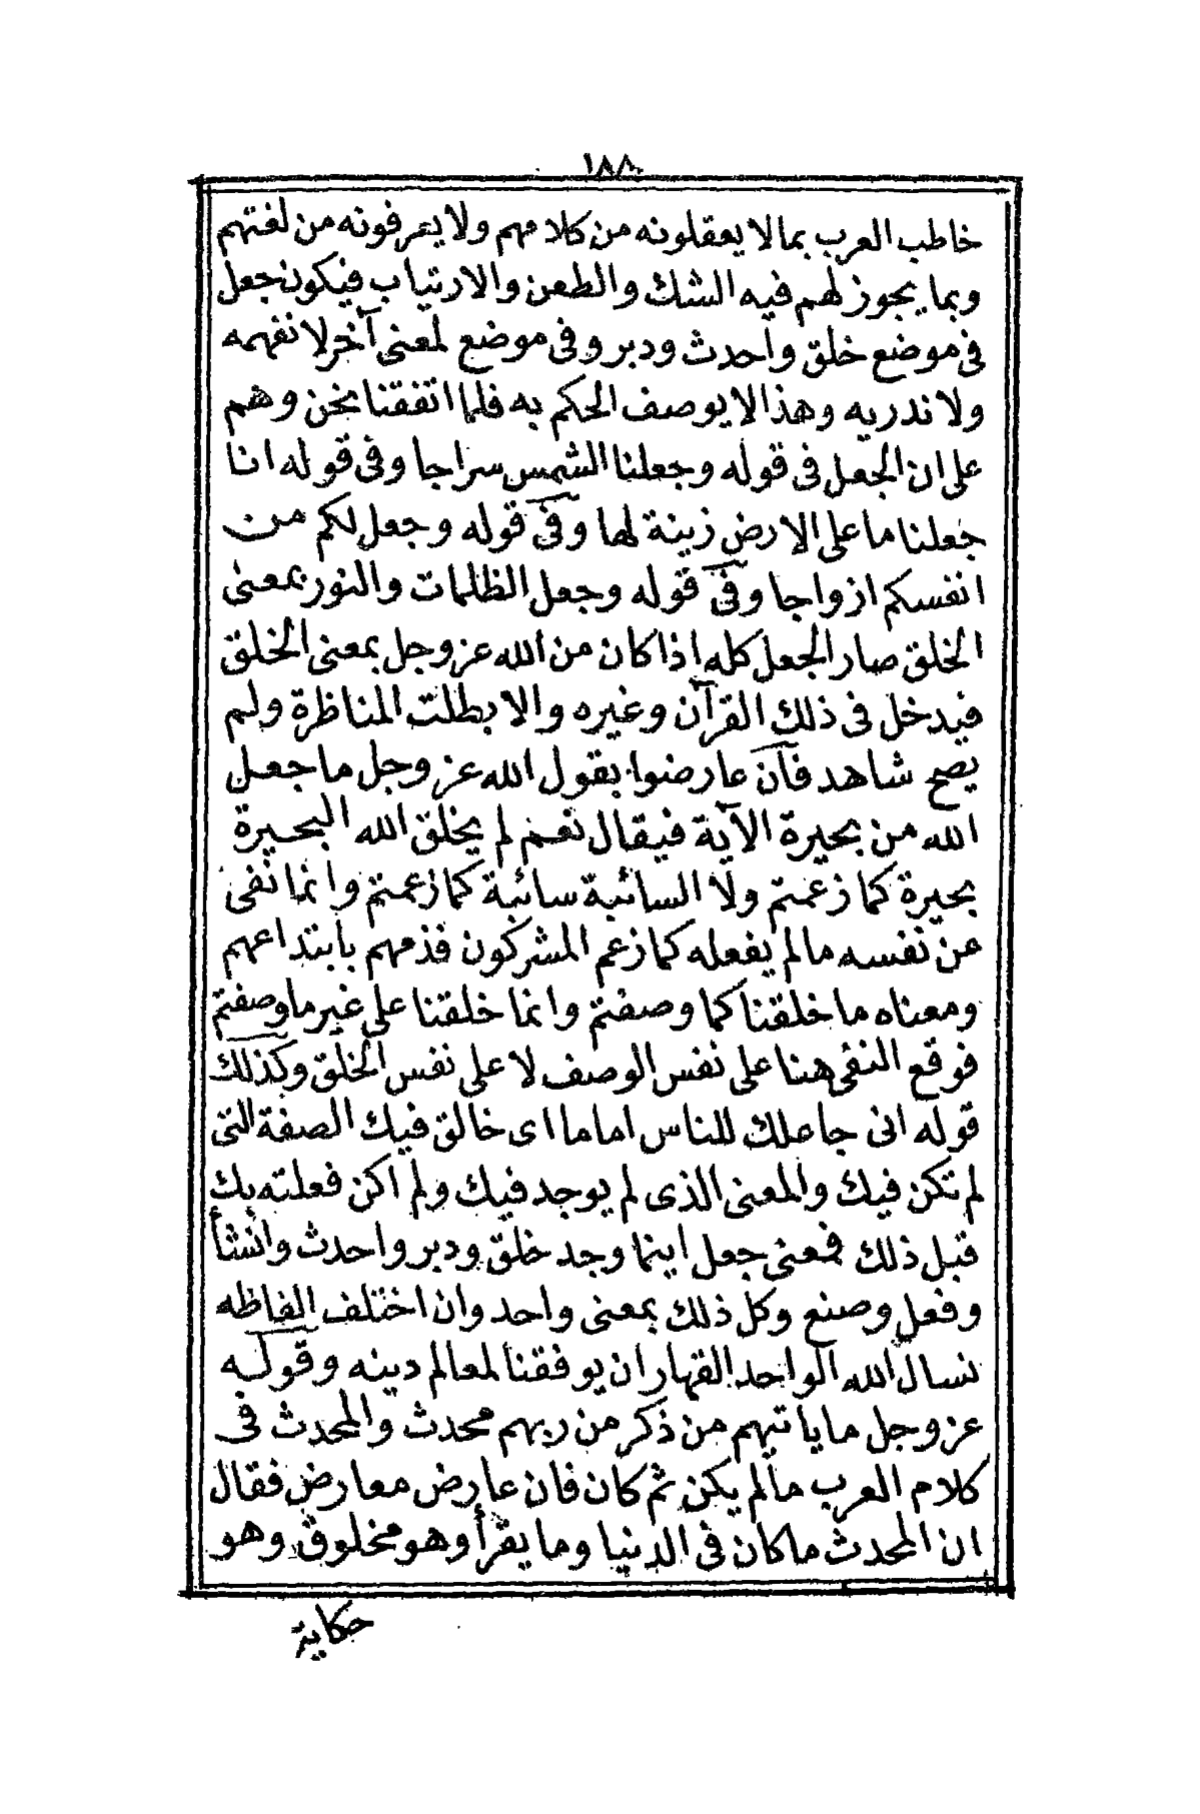 ١٨٨
خاطب العرب بما لا يعقلونه من كلامهم ولا يعرفونه من لغتهم
وبما يجوز لهم فيه الشك والطعن والارتياب فيكون جعل
فى موضع خلق واحدث ودبر وفى موضع لمعنى آخر لا نفهمه
ولا ندريه وهذا لا يوصف الحكم به فلما اتفقنا نحن وهم
على ان الجعل فى قوله وجعلنا الشمس سراجا وفى قوله انا
جعلنا ما على الارض زينة لها وفى قوله وجعل لكم من
انفسكم ازواجا وفى قوله وجعل الظلمات والنور بمعنى
الخلق صار الجعل كله اذا كان من الله عز وجل بمعنى الخلق
فيدخل فى ذلك القرآن وغيره والا بطلت المناظرة ولم
يصح شاهد فآن عارضوا بقول الله عز وجل ما جعل
الله من بحيرة الآية فيقال نعم لم يخلق الله البحيرة
بحيرة كما زعمتم ولا السائبة سائبة كما زعمتم وانما نفى
عن نفسه مالم يفعله كما زعم المشركون فذمهم بابتداعهم
ومعناه ما خلقنا كما وصفتم وانما خلقنا على غير ما وصفتم
فوقع النفى هنا على نفس الوصف لا على نفس الخلق وكذلك
قوله انى جاعلك للناس اماما اى خالق فيك الصفة التى
لم تكن فيك والمعنى الذى لم يوجد فيك ولم اكن فعلته بك
قبل ذلك فمعنى جعل اينما وجد خلق ودبر واحدث وانشأ
وفعل وصنع وكل ذلك بمعنى واحد وان اختلف الفاظه
نسال الله الواحد القهار ان يوفقنا لمعالم دينه وقوله
عز وجل ما ياتيهم من ذكر من ربهم محدث والمحدث فى
كلام العرب مالم يكن ثم كان فان عارض معارض فقال
ان المحدث ما كان فى الدنيا وما يقرأ وهو مخلوق وهو
حكاية